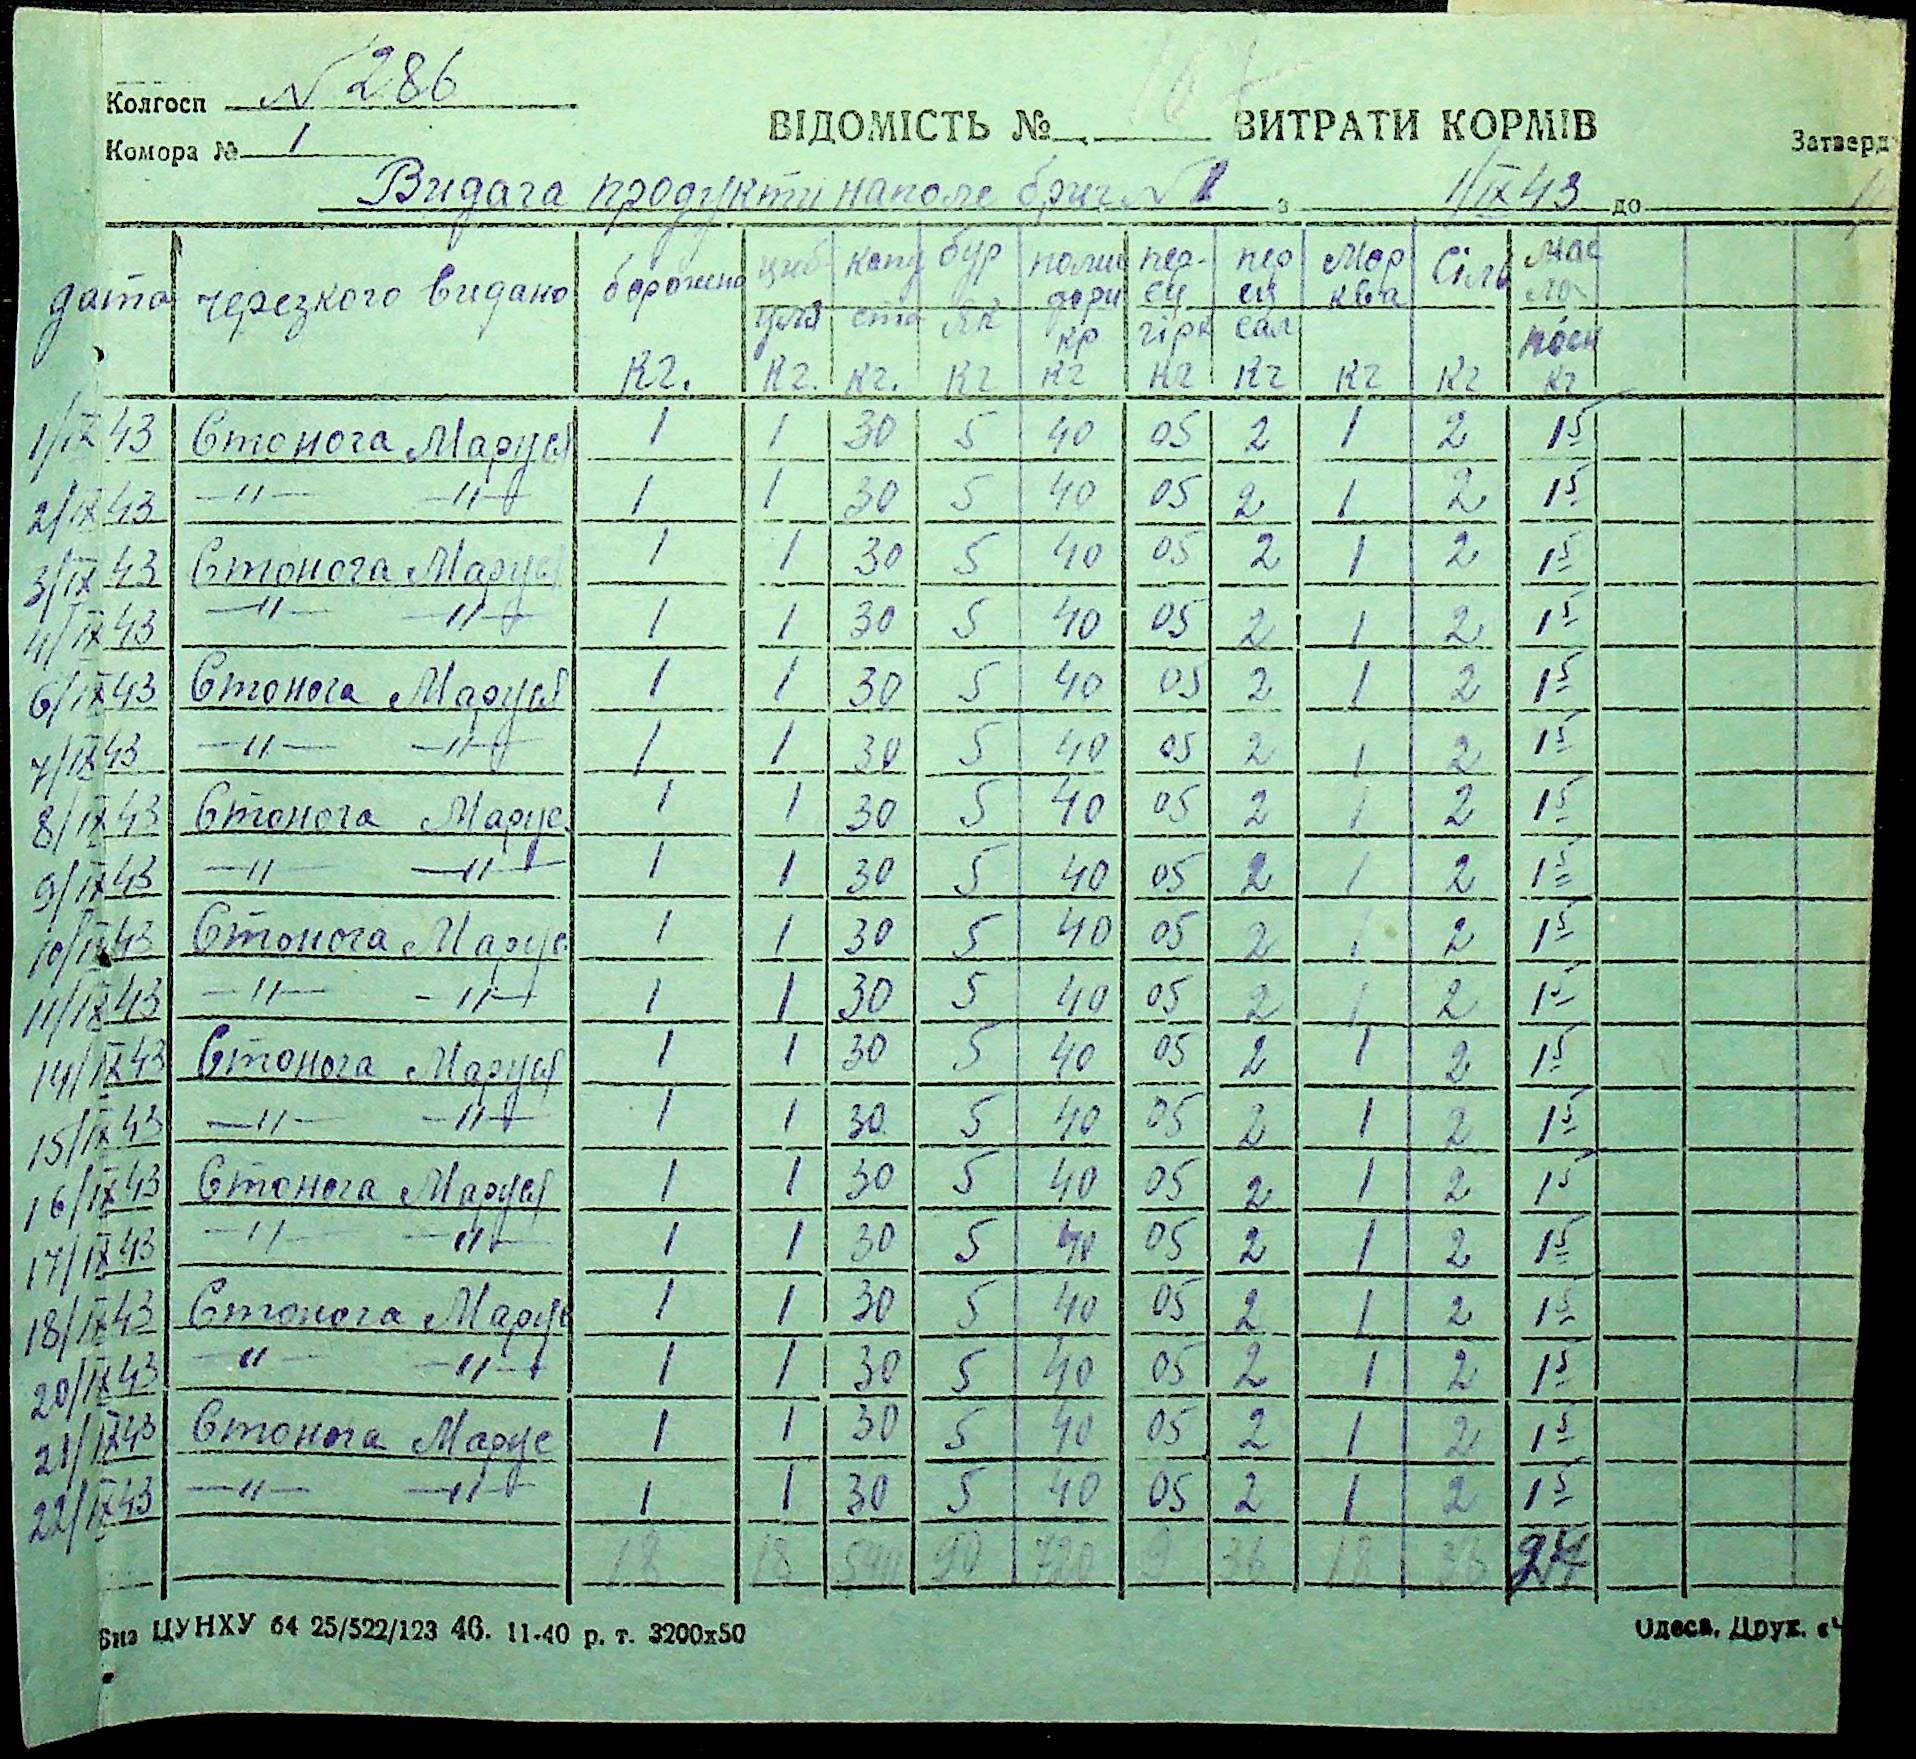 Колгосп N 286
ВІДОМІСТЬ № ВИТРАТИ КОРМІВ
Комора № 1
Затверд
Видача продукти наполе бриг N 1 з 1/IX 43 до
дата черезкого видано борошно циб капу бур поми пер- пер Мор Сіль мас
уля ста як дори ец ец ква ло
кр гірк сал посн
кг. кг. кг. кг кг кг кг кг кг кг
1/IX 43 Стонога Маруся 1 1 30 5 40 05 2 1 2 1 5
2/IX 43 —〃— —〃— 1 1 30 5 40 05 2 1 2 1 5
3/IX 43 Стонога Маруся 1 1 30 5 40 05 2 1 2 1 5
4/IX 43 —〃— —〃— 1 1 30 5 40 05 2 1 2 1 5
6/IX 43 Стонога Маруся 1 1 30 5 40 05 2 1 2 1 5
7/IX 43 —〃— —〃— 1 1 30 5 40 05 2 1 2 1 5
8/IX 43 Стонога Марус 1 1 30 5 40 05 2 1 2 1 5
9/IX 43 —〃— —〃— 1 1 30 5 40 05 2 1 2 1 5
10/IX 43 Стонога Марус 1 1 30 5 40 05 2 1 2 1 5
11/IX 43 —〃— —〃— 1 1 30 5 40 05 2 1 2 1 5
14/IX 43 Стонога Маруся 1 1 30 5 40 05 2 1 2 1 5
15/IX 43 —〃— —〃— 1 1 30 5 40 05 2 1 2 1 5
16/IX 43 Стонога Маруся 1 1 30 5 40 05 2 1 2 1 5
17/IX 43 —〃— —〃— 1 1 30 5 40 05 2 1 2 1 5
18/IX 43 Стонога Марус 1 1 30 5 40 05 2 1 2 1 5
20/IX 43 —〃— —〃— 1 1 30 5 40 05 2 1 2 1 5
21/IX 43 Стонога Марус 1 1 30 5 40 05 2 1 2 1 5
22/IX 43 —〃— —〃— 1 1 30 5 40 05 2 1 2 1 5
18 18 540 90 720 9 36 18 36 27
ЦУНХУ 64 25/522/123 40. 11-40 р. т. 3200х50
Одеса. Друк. «Ч